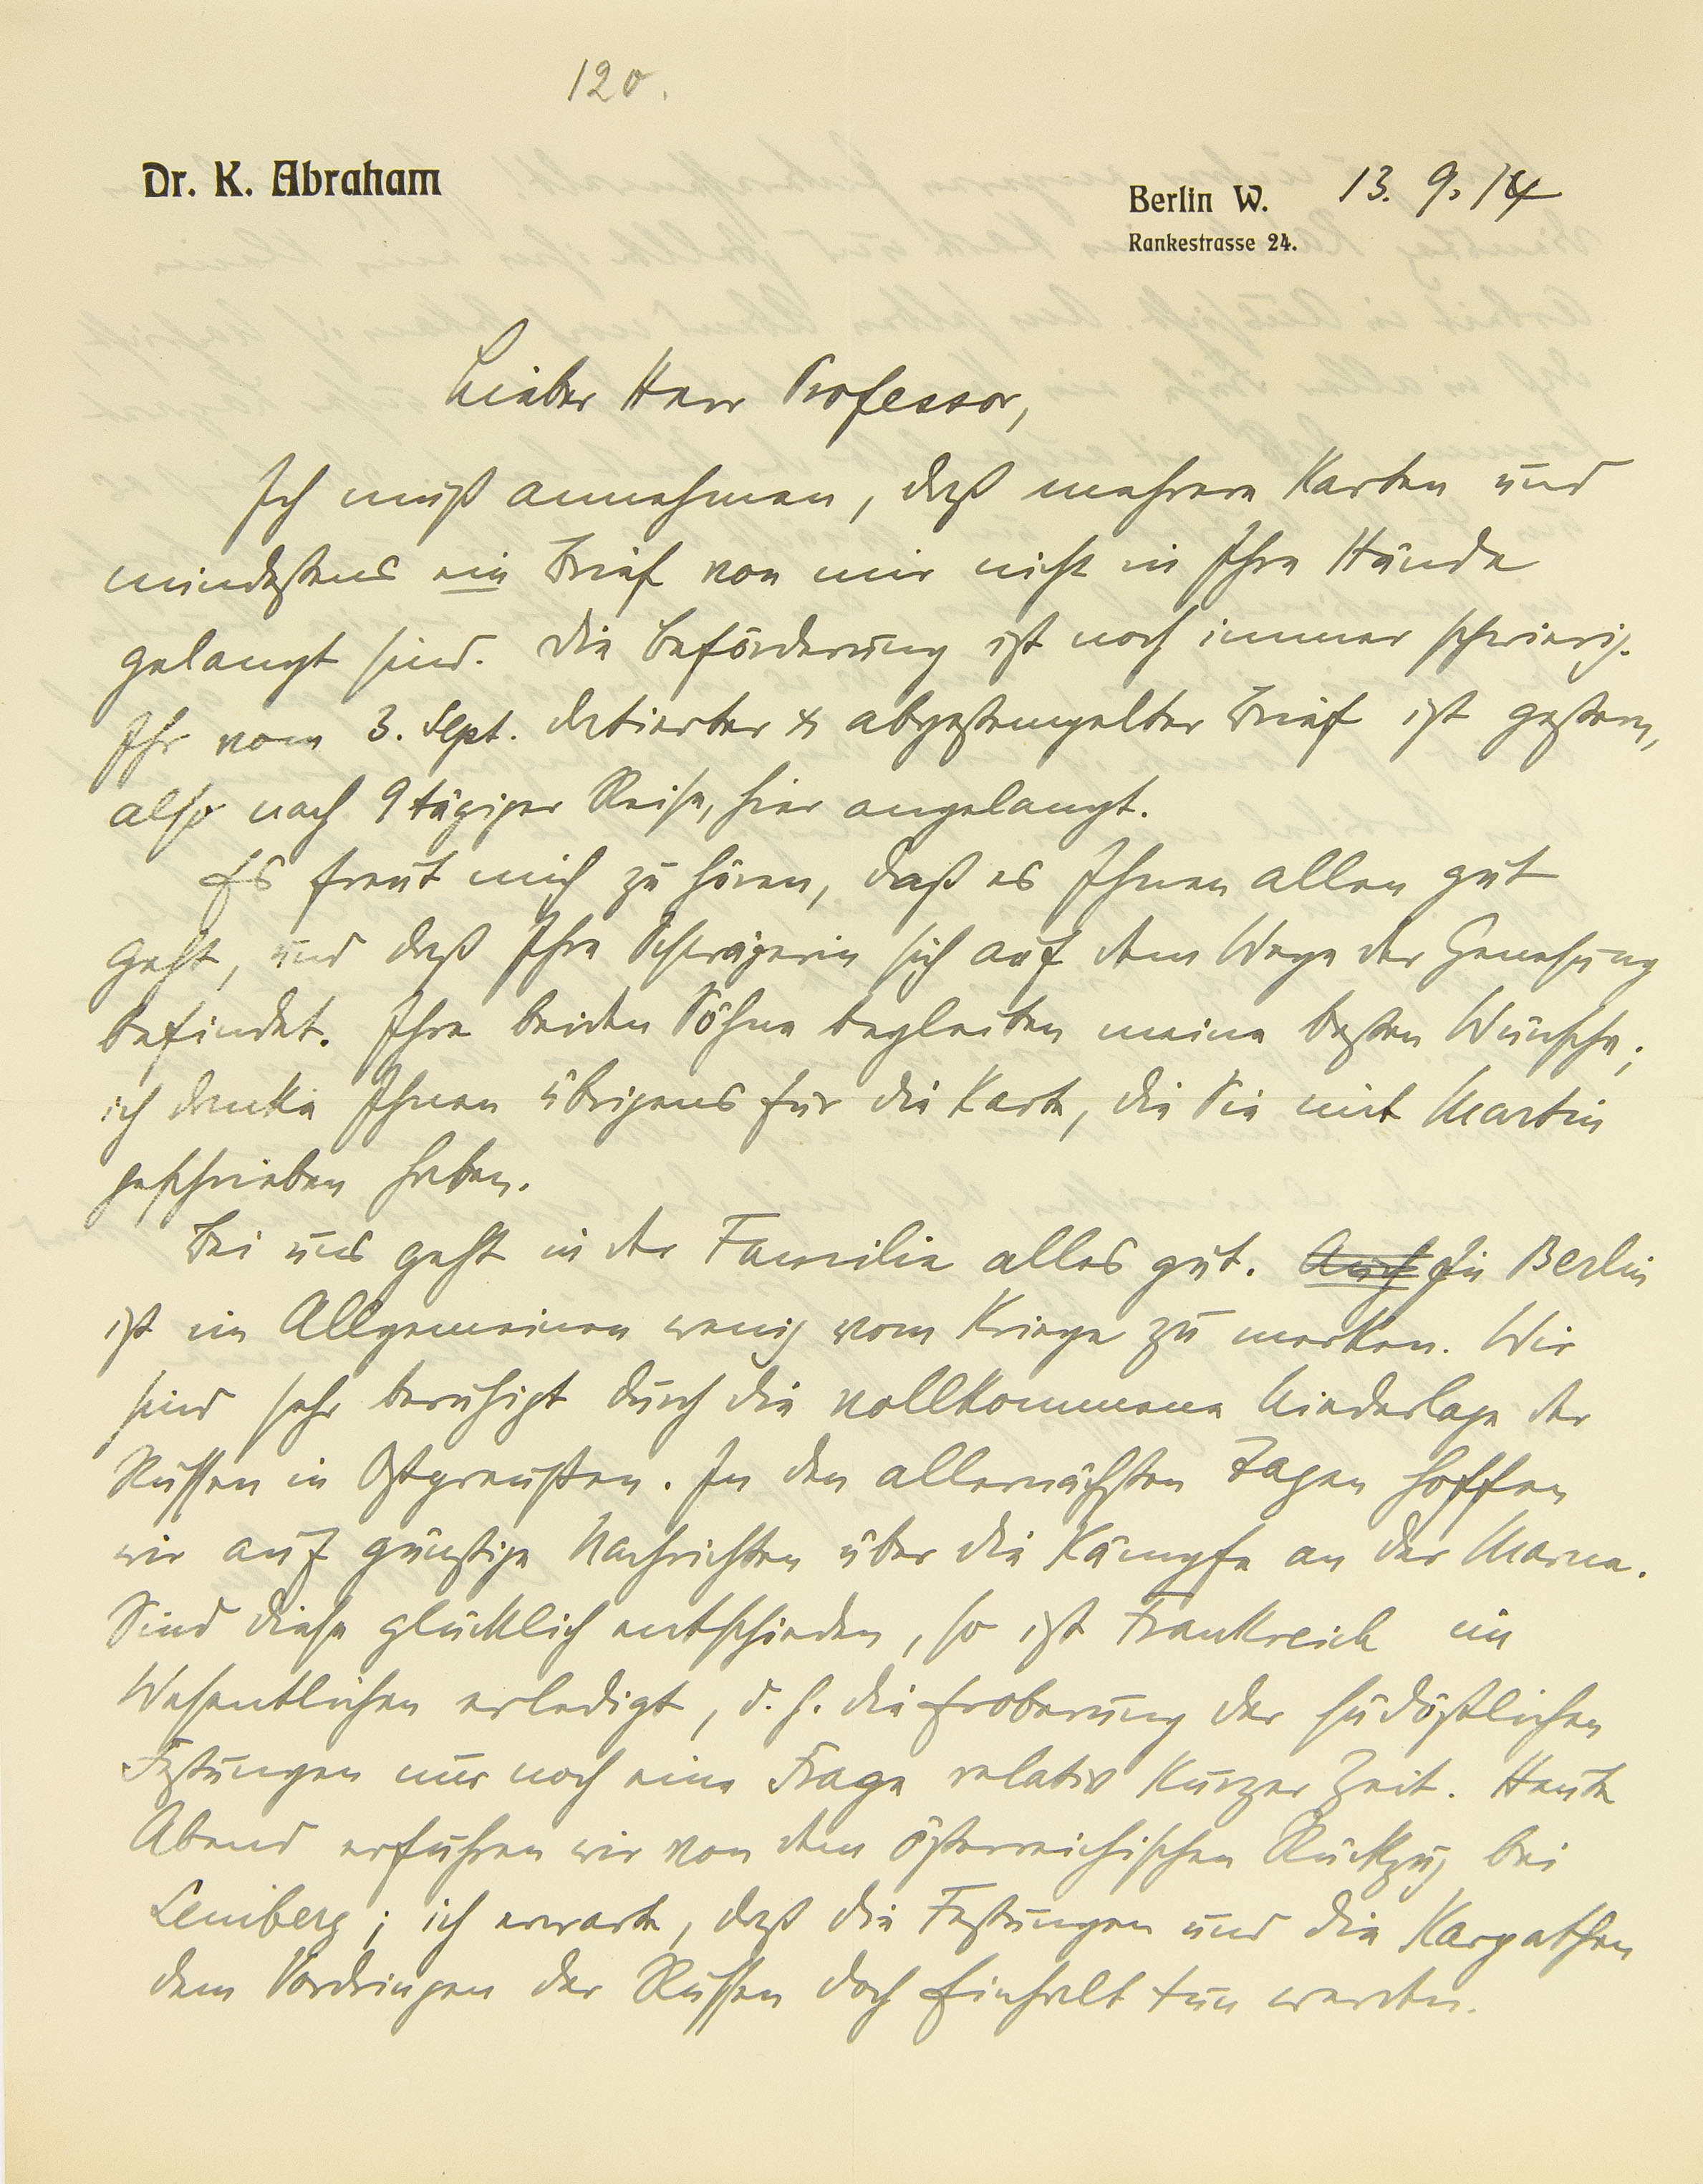 120.
Dr. K. Abraham
Berlin W. 13. 9. 14
Rankestrasse 24.
Lieber Herr Professor,
Ich muß annehmen, daß mehrere Karten und
mindestens ein Brief von mir nicht in Ihre Hände
gelangt sind. Die Beförderung ist noch immer schwierig.
Ihr vom 3. Sept. datierter & abgestempelter Brief ist gestern,
also nach 9 tägiger Reise, hier angelangt.
Es freut mich zu hören, daß es Ihnen allen gut
geht, und daß Ihre Schwägerin sich auf dem Wege der Genesung
befindet. Ihre beiden Söhne begleiten meine besten Wünsche;
ich danke Ihnen übrigens für die Karte, die Sie mit Martin
geschrieben haben.
Bei uns geht in der Familie alles gut. Auch In Berlin
ist im Allgemeinen wenig vom Kriege zu merken. Wir
sind sehr beruhigt durch die vollkommene Niederlage der
Russen in Ostpreußen. In den allernächsten Tagen hoffen
wir auf günstige Nachrichten über die Kämpfe an der Marne.
Sind diese glücklich entschieden, so ist Frankreich im
Wesentlichen erledigt, d. h. die Eroberung der südöstlichen
Festungen nur noch eine Frage relativ kurzer Zeit. Heute
Abend erfuhren wir von dem österreichischen Rückzug bei
Lemberg; ich erwarte, daß die Festungen und die Karpathen
dem Vordringen der Russen doch Einhalt tun werden.